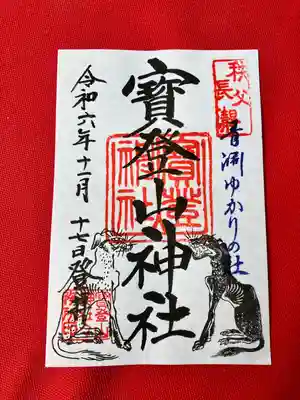 秩父
長瀞
青淵ゆかりの社
寳登山神社
令和六年十一月十七日登拝